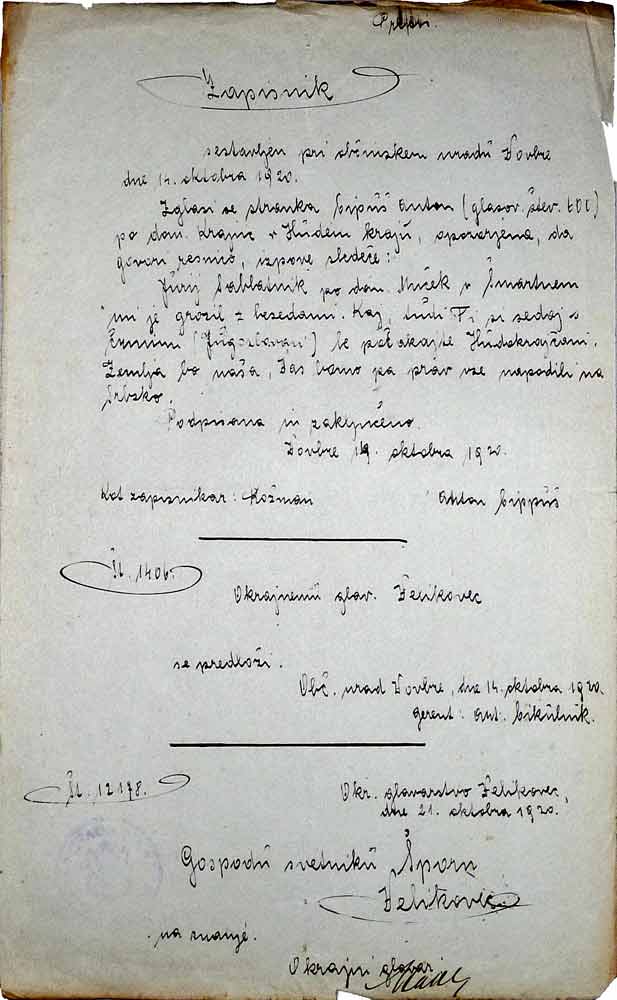 Prepis.
Zapisnik
sestavljen pri občinskem uradu Vovbre
dne 14. oktobra 1920.
Zglasi se stranka Cipuš Anton (glasov. štev.
po dom. Krajnc v Hudem kraju, opozorjena, da
govori resnico, izpove sledeče:
Jurij Sablatnik po dom. Muček v Šmartnem
mi je grozil z besedami. Kaj, tudi Ti si sedaj s
(Jugoslovani) le počakajte Hudokrajčani.
Zemlja bo naša, Vas bomo pa prav vse napodili na
Srbsko.
Podpisano in zaključeno.
Vovbre 14. oktobra 1920.
Kot zapisnikar: Košman Anton Cippuš
Št. 1406.
Okrajnemu glav. Velikovec
se predloži.
Obč. urad Vovbre, dne 14. oktobra 1920.
gerent: Ant. Cikulnik.
Št. 12178.
Okr. glavarstvo Velikovec,
dne 21. oktobra 1920.
Gospodu svetniku Šporn
Velikovec.
na znanje.
Okrajni glavar